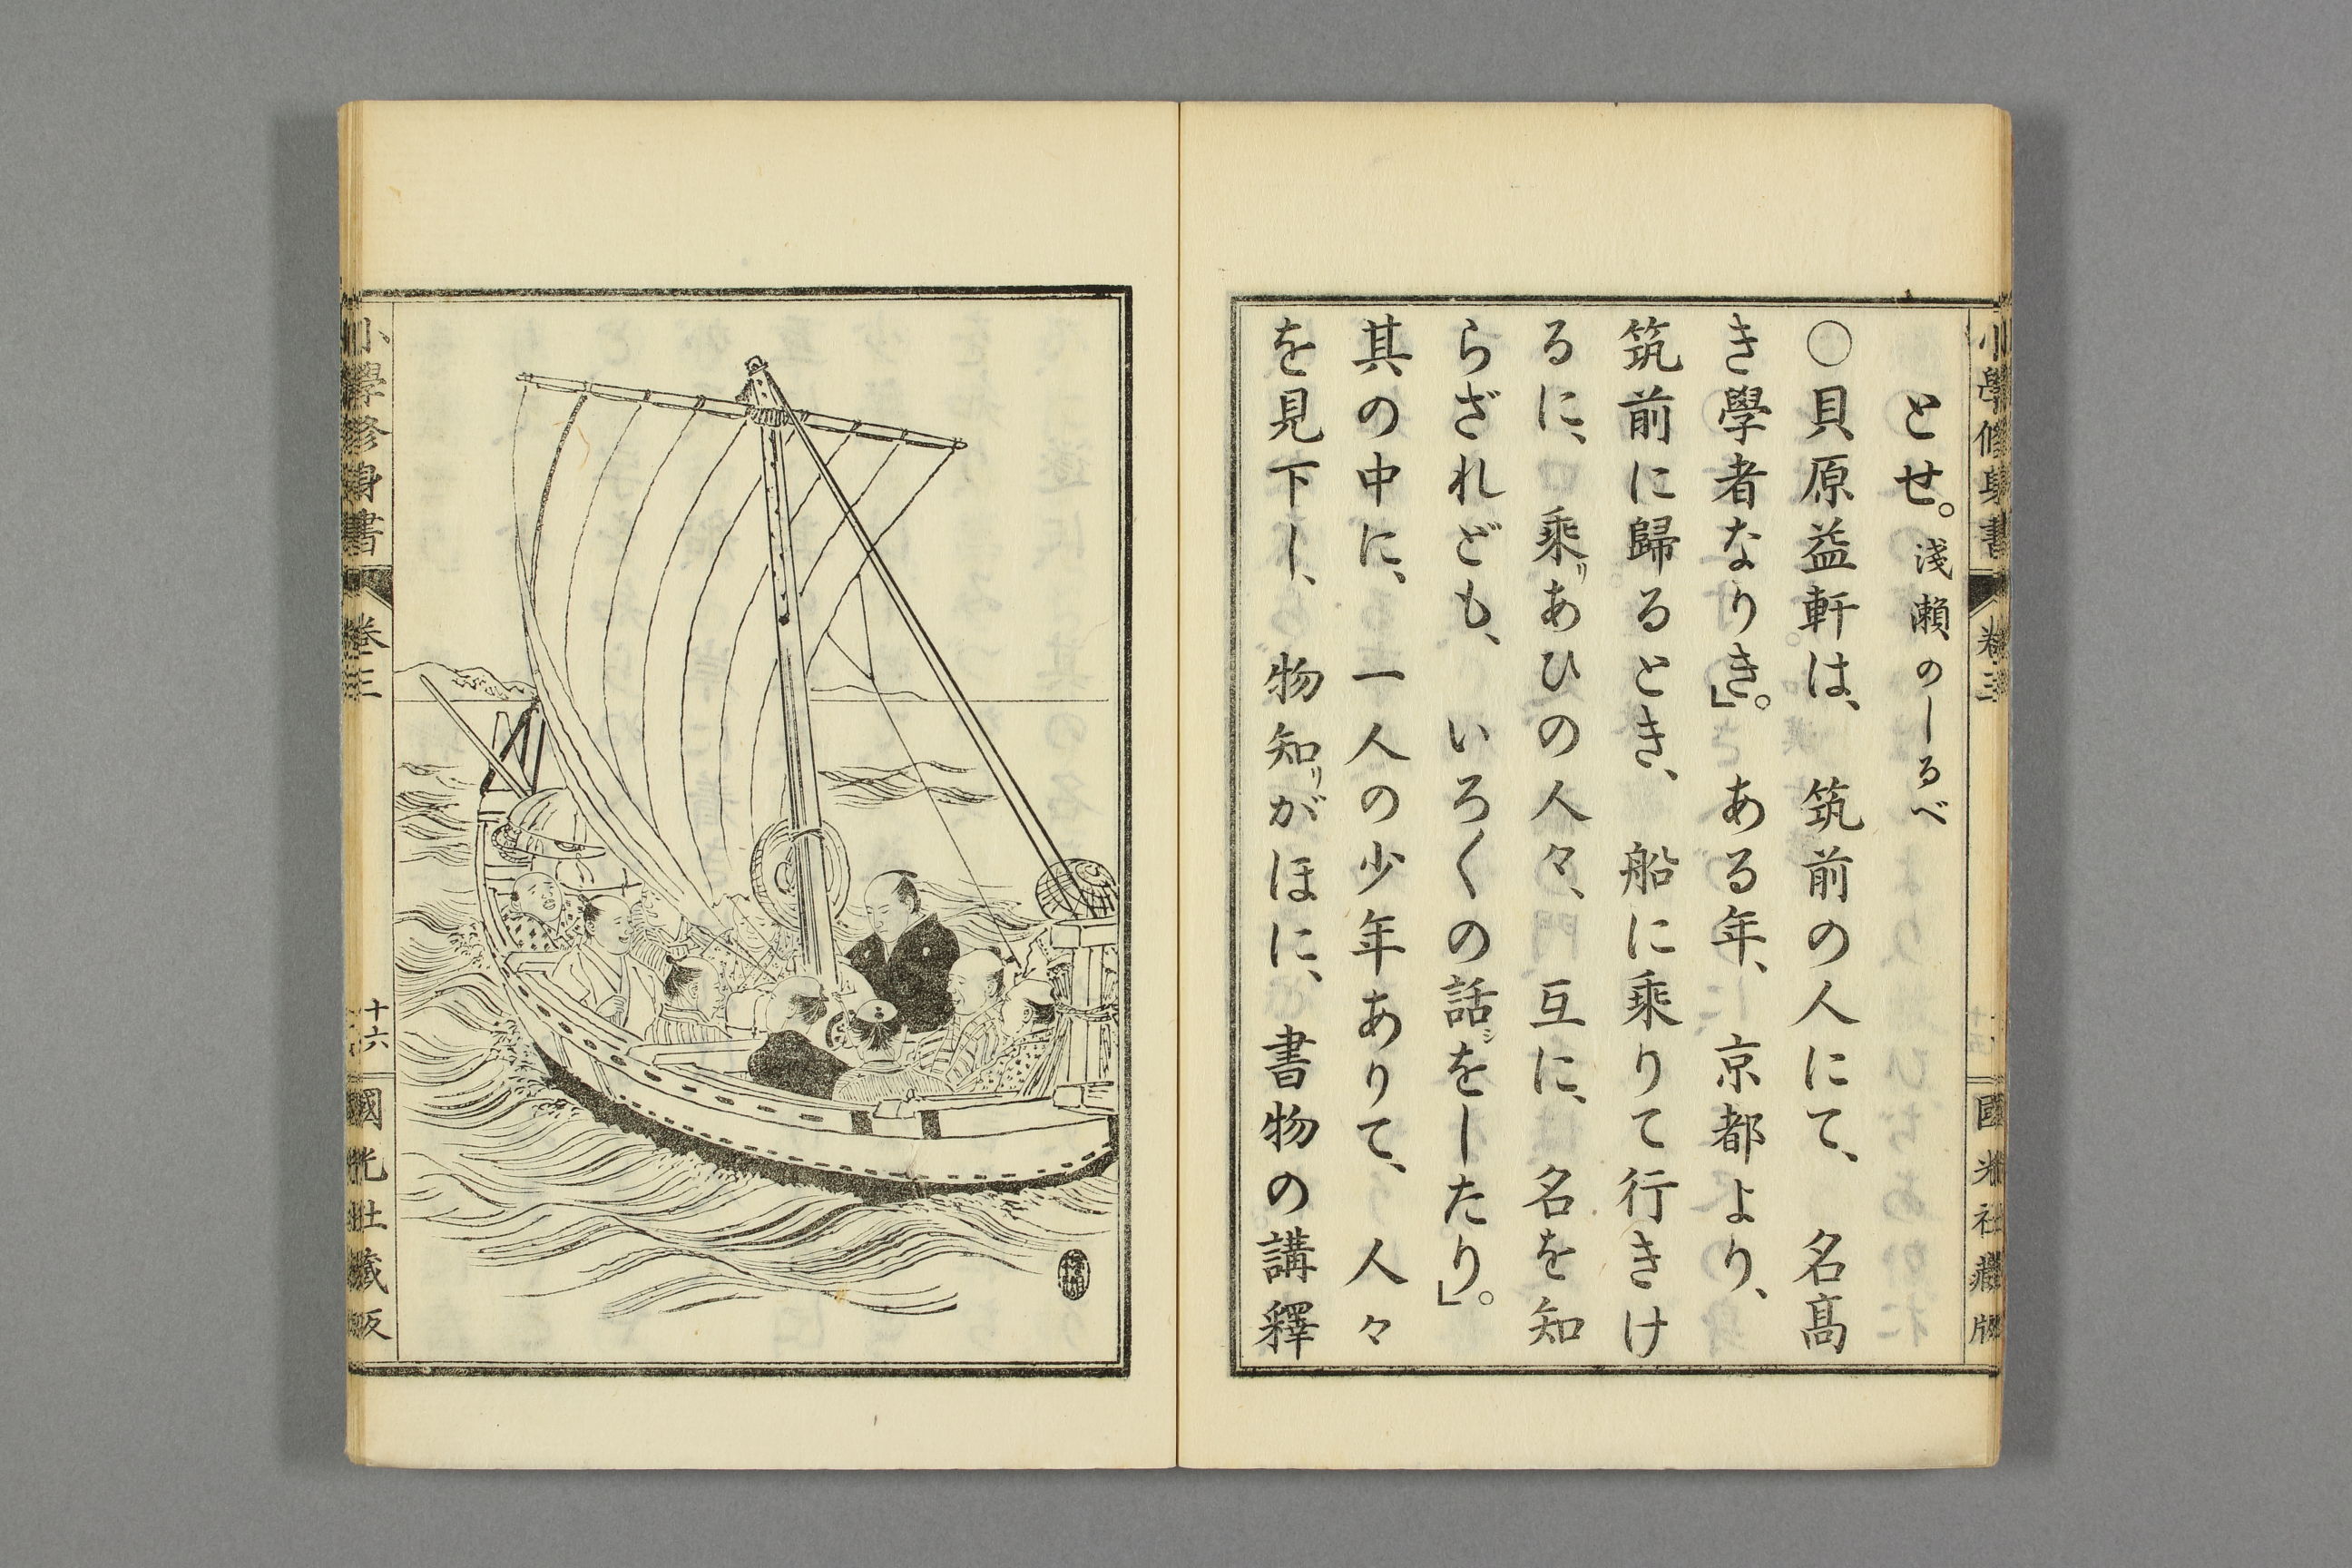 小學修身書 卷三 國光社藏版
とせ。淺瀨のしるべ
○貝原益軒は、筑前の人にて、名高
き學者なりき。」ある年、京都より、
筑前に歸るとき、船に乘りて行きけ
るに、乘リあひの人々、互に、名を知
らざれども、いろ〳〵の話シをしたり。」
其の中に、一人の少年ありて、人々
を見下し、物知リがほに、書物の講釋
小學修身書 卷三 十六 國光社藏版